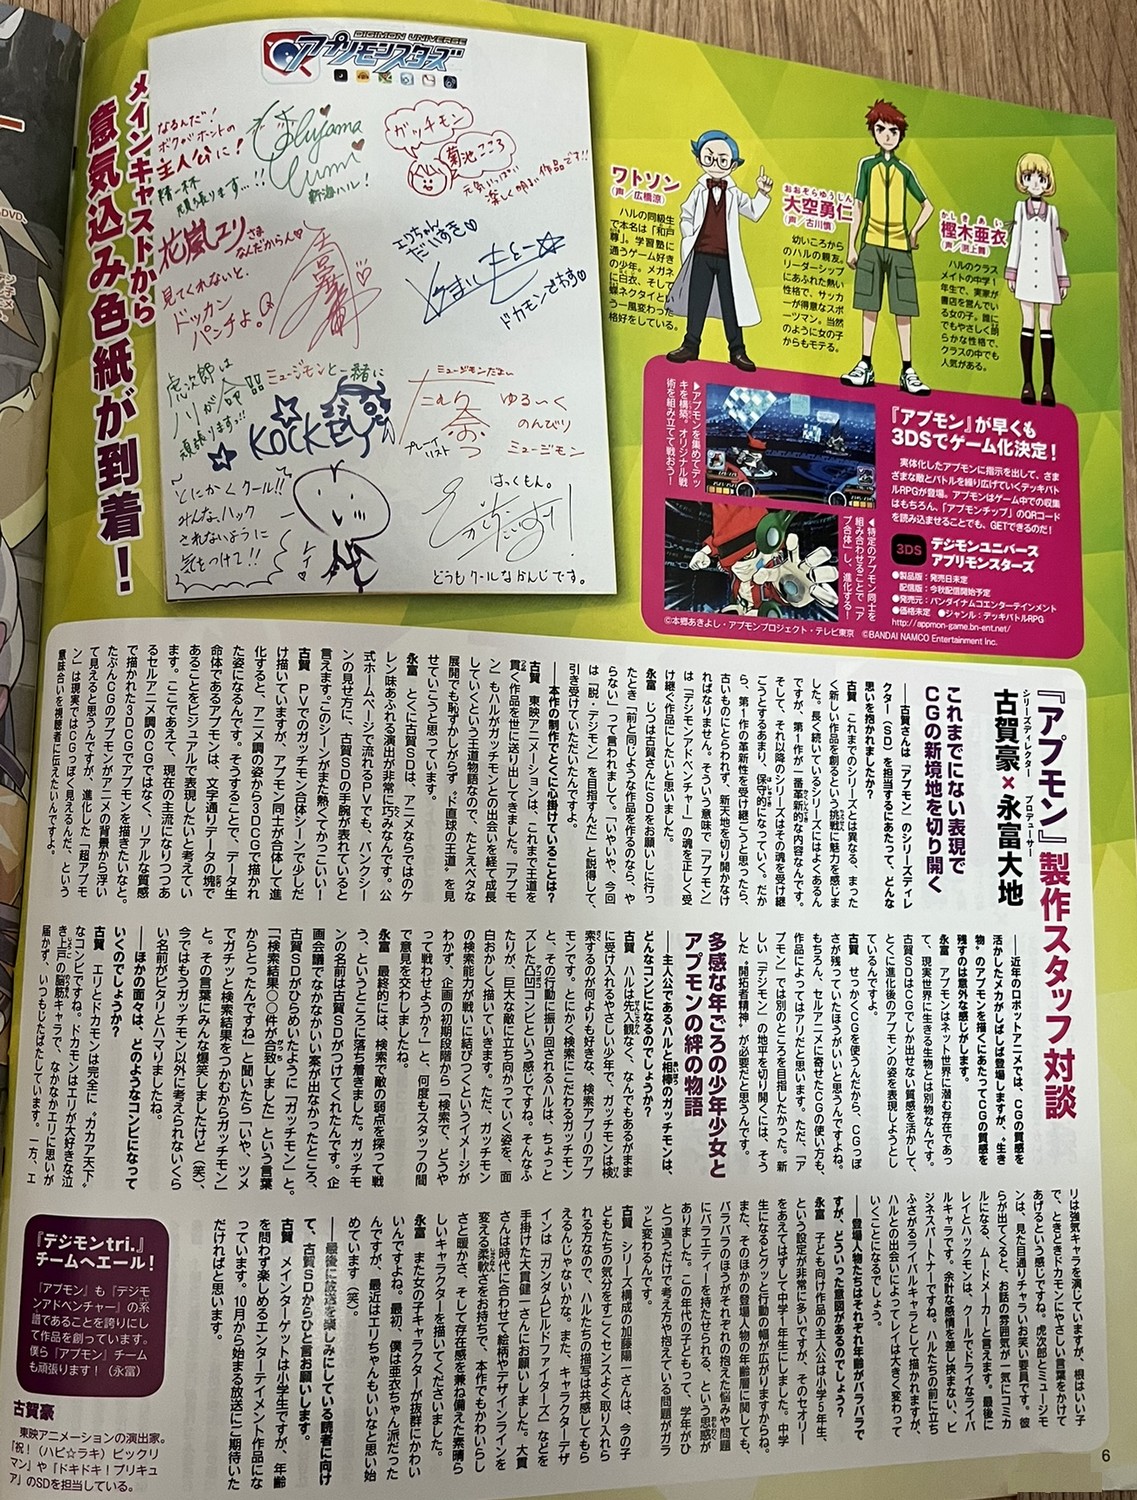 DIGIMON UNIVERSE
アプリモンスターズ
メインキャストから
意気込み色紙が到着!
なるんだ!
ボクがホントの
主人公に!
精一杯
頑張ります…!!
新海ハル!
ガッチモン
菊池こころ
元気いっぱい
楽しく明るい作品です!!
花嵐エリさま
なんだからん
見てくれないと、
ドッカン
パンチよ。
エリちゃん
だいすき♡
ドカモンでやす♡
虎次郎は
ノリが命!!
頑張ります…!!
ミュージモンと一緒に
ROCK
ミュージモンだよい
プレイ
リスト
ゆるーく
のんびり
ミュージモン
とにかくクール!!
みんな、ハック
されないように
気をつけて!!
はっくもん。
どうもクールなかんじです。
ワトソン
(声/広橋涼)
ハルの同級生
で本名は「和戸
尊」。学習塾に
通うゲーム好き
の少年。メガネ
に白衣、そして
蝶ネクタイとい
う一風変わった
格好をしている。
おおぞらゆうじん
大空勇仁
(声/古川慎)
幼いころから
のハルの親友。
リーダーシップ
にあふれた熱い
性格で、サッカ
ーが得意なスポ
ーツマン。当然
のように女の子
からもモテる。
かしきあい
樫木亜衣
(声/渕上舞)
ハルのクラス
メイトの中学1
年生で、実家が
書店を営んでい
る女の子。誰に
でもやさしく朗
らかな性格で、
クラスの中でも
人気がある。
『アプモン』が早くも
3DSでゲーム化決定!
実体化したアプモンに指示を出して、さま
ざまな敵とバトルを繰り広げていくデッキバ
トルRPGが登場。アプモンはゲーム中での収集
はもちろん、「アプモンチップ」のQRコード
を読み込ませることでも、GETできるのだ!
3DS
デジモンユニバース
アプリモンスターズ
●製品版:発売日未定
配信版:今秋配信開始予定
●発売元:バンダイナムコエンターテインメント
●価格未定 ●ジャンル:デッキバトルRPG
http://appmon-game.bn-ent.net/
▶アプモンを集めてデッ
キを構築。オリジナル戦
術を組み立てて戦おう!
◀特定のアプモン同士を
組み合わせることで「ア
プ合体」し、進化する!
©本郷あきよし・アプモンプロジェクト・テレビ東京 ©BANDAI NAMCO Entertainment Inc.
『アプモン』製作スタッフ対談
シリーズディレクター
古賀豪×
プロデューサー
永富大地
これまでにない表現で
CGの新境地を切り開く
──古賀さんは『アプモン』のシリーズディレ
クター(SD)を担当するにあたって、どんな
思いを抱かれましたか?
古賀 これまでのシリーズとは異なる、まった
く新しい作品を創るという挑戦に魅力を感じま
した。長く続いているシリーズにはよくあるん
ですが、第1作が一番革新的な内容なんです。
そして、それ以降のシリーズはその魂を受け継
ごうとするあまり、保守的になっていく。だか
ら、第1作の革新性を受け継ごうと思ったら、
古いものにとらわれず、新天地を切り開かなけ
ればなりません。そういう意味で『アプモン』
は『デジモンアドベンチャー』の魂を正しく受
け継ぐ作品にしたいと思いました。
永富 じつは古賀さんにSDをお願いしに行っ
たとき「前と同じような作品を作るのなら、や
らない」って言われまして。「いやいや、今回
は『脱・デジモン』を目指すんだ」と説得して、
引き受けていただいたんですよ。
──本作の制作でとくに心掛けていることは?
古賀 東映アニメーションは、これまで王道を
貫く作品を世に送り出してきました。『アプモ
ン』もハルがガッチモンとの出会いを経て成長
していくという王道物語なので、たとえベタな
展開でも恥ずかしがらず〝ド直球の王道〟を見
せていこうと思っています。
永富 とくに古賀SDは、アニメならではのケ
レン味あふれる演出が非常に巧みなんです。公
式ホームページで流れるPVでも、バンクシー
ンの見せ方に、古賀SDの手腕が表れていると
言えます。このシーンがまた熱くてかっこいい!
古賀 PVでのガッチモン合体シーンで少しだ
け描いていますが、アプモン同士が合体して進
化すると、アニメ調の姿から3DCGで描かれ
た姿になるんです。そうすることで、データ生
命体であるアプモンは、文字通りデータの塊で
あることをビジュアルで表現したいと考えてい
ます。ここであえて、現在の主流になりつつあ
るセルアニメ調のCGではなく、リアルな質感
で描かれた3DCGでアプモンを描きたいなと。
たぶんCGのアプモンがアニメの背景から浮い
て見えると思うんですが、進化した「超アプモ
ン」は現実ではCGっぽく見えるんだ、という
意味合いを視聴者に伝えたいんですよ。
──近年のロボットアニメでは、CGの質感を
活かしたメカがしばしば登場しますが、〝生き
物〟のアプモンを描くにあたってCGの質感を
残すのは意外な感じがします。
永富 アプモンはネット世界に潜む存在であっ
て、現実世界に生きる生物とは別物なんです。
古賀SDはCGでしか出せない質感を活かして、
とくに進化後のアプモンの姿を表現しようとし
ているんです。
古賀 せっかくCGを使うんだから、CGっぽ
さが残っていたほうがいいと思うんですよね。
もちろん、セルアニメに寄せたCGの使い方も、
作品によってはアリだと思います。ただ、『ア
プモン』では別のところを目指したかった。新
しい『デジモン』の地平を切り開くには、そう
した〝開拓者精神〟が必要だと思うんです。
多感な年ごろの少年少女と
アプモンの絆の物語
──主人公であるハルと相棒のガッチモンは、
どんなコンビになるのでしょうか?
古賀 ハルは先入観なく、なんでもあるがまま
に受け入れるやさしい少年で、ガッチモンは検
索するのが何よりも好きな、検索アプリのアプ
モンです。とにかく検索にこだわるガッチモン
と、その行動に振り回されるハルは、ちょっと
ズレた凸凹コンビという感じですね。そんなふ
たりが、巨大な敵に立ち向かっていく姿を、面
白おかしく描いていきます。ただ、ガッチモン
の検索能力が戦いに結びつくというイメージが
わかず、企画の初期段階から「検索で、どうや
って戦わせようか?」と、何度もスタッフの間
で意見を交わしましたね。
永富 最終的には、検索で敵の弱点を探って戦
う、というところに落ち着きました。ガッチモ
ンの名前は古賀SDがつけてくれたんです。企
画会議でなかなかいい案が出なかったところ、
古賀SDがひらめいたように「ガッチモン」と。
「『検索結果〇〇件が合致しました』という言葉
からとったんですね」と聞いたら「いや、ツメ
でガチッと検索結果をつかむからガッチモン」
と。その言葉にみんな爆笑しましたけど(笑)、
今ではもうガッチモン以外に考えられないくら
い名前がピタリとハマりましたね。
──ほかの面々は、どのようなコンビになって
いくのでしょうか?
古賀 エリとドカモンは完全に〝カカア天下〟
なコンビですね。ドカモンはエリが大好きな泣
き上戸の脳筋キャラで、なかなかエリに思いが
届かず、いつもじたばたしています。一方、エ
リは強気キャラを演じていますが、根はいい子
で、ときどきドカモンにやさしい言葉をかけて
あげるという感じですね。虎次郎とミュージモ
ンは、見た目通りチャラいお笑い要員です。彼
らが出てくると、お話の雰囲気が一気にコミカ
ルになる、ムードメーカーと言えます。最後に
レイとハックモンは、クールでドライなライバ
ジネスパートナーですね。ハルたちの前に立ち
ふさがるライバルキャラとして描かれますが、
ハルとの出会いによってレイは大きく変わって
いくことになるでしょう。
──登場人物たちはそれぞれ年齢がバラバラで
すが、どういった意図があるのでしょう?
永富 子ども向け作品の主人公は小学5年生、
という設定が非常に多いですが、そのセオリー
をあえてはずして中学1年生にしました。中学
生になるとグッと行動の幅が広がりますからね。
また、そのほかの登場人物の年齢層に関しても、
バラバラのほうがそれぞれの抱えた悩みや問題
にバラエティーを持たせられる、という思惑が
ありました。この年代の子どもって、学年がひ
とつ違うだけで考え方や抱えている問題がガラ
ッと変わるんです。
古賀 シリーズ構成の加藤陽一さんは、今の子
どもたちの気分をすごくセンスよく取り入れら
れる方なので、ハルたちの描写は共感してもら
えるんじゃないかな。また、キャラクターデザ
インは『ガンダムビルドファイターズ』などを
手掛けた大貫健一さんにお願いしました。大貫
さんは時代に合わせて絵柄やデザインラインを
変える柔軟さをお持ちで、本作でもかわいらし
さと暖かさ、そして存在感を兼ね備えた素晴ら
しいキャラクターを描いてくださいました。
永富 また女の子キャラクターが抜群にかわい
いんですよね。最初、僕は亜衣ちゃん派だった
んですが、最近はエリちゃんもいいなと思い始
めています(笑)。
──最後に放送を楽しみにしている読者に向け
て、古賀SDからひと言お願いします。
古賀 メインターゲットは小学生ですが、年齢
を問わず楽しめるエンターテイメント作品にな
っています。10月から始まる放送にご期待いた
だければと思います。
『デジモンtri.』
チームへエール!
『アプモン』も『デジモ
ンアドベンチャー』の系
譜であることを誇りにし
て作品を創っています。
僕ら『アプモン』チーム
も頑張ります!(永富)
古賀豪
東映アニメーションの演出家。
『祝!(ハピ☆ラキ)ビックリ
マン』や『ドキドキ!プリキュ
ア』のSDを担当している。
6